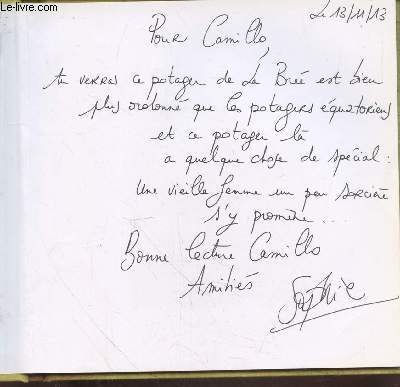 Le-livre.com
Le 13/11/13
Pour Camillo,
tu verras ce potager de La Brée est bien
plus ordonné que les potagers équatoriens
et ce potager là
a quelque chose de spécial :
une vieille femme un peu sorcière
s'y promène...
Bonne lecture Camillo
Amitiés
Sophie